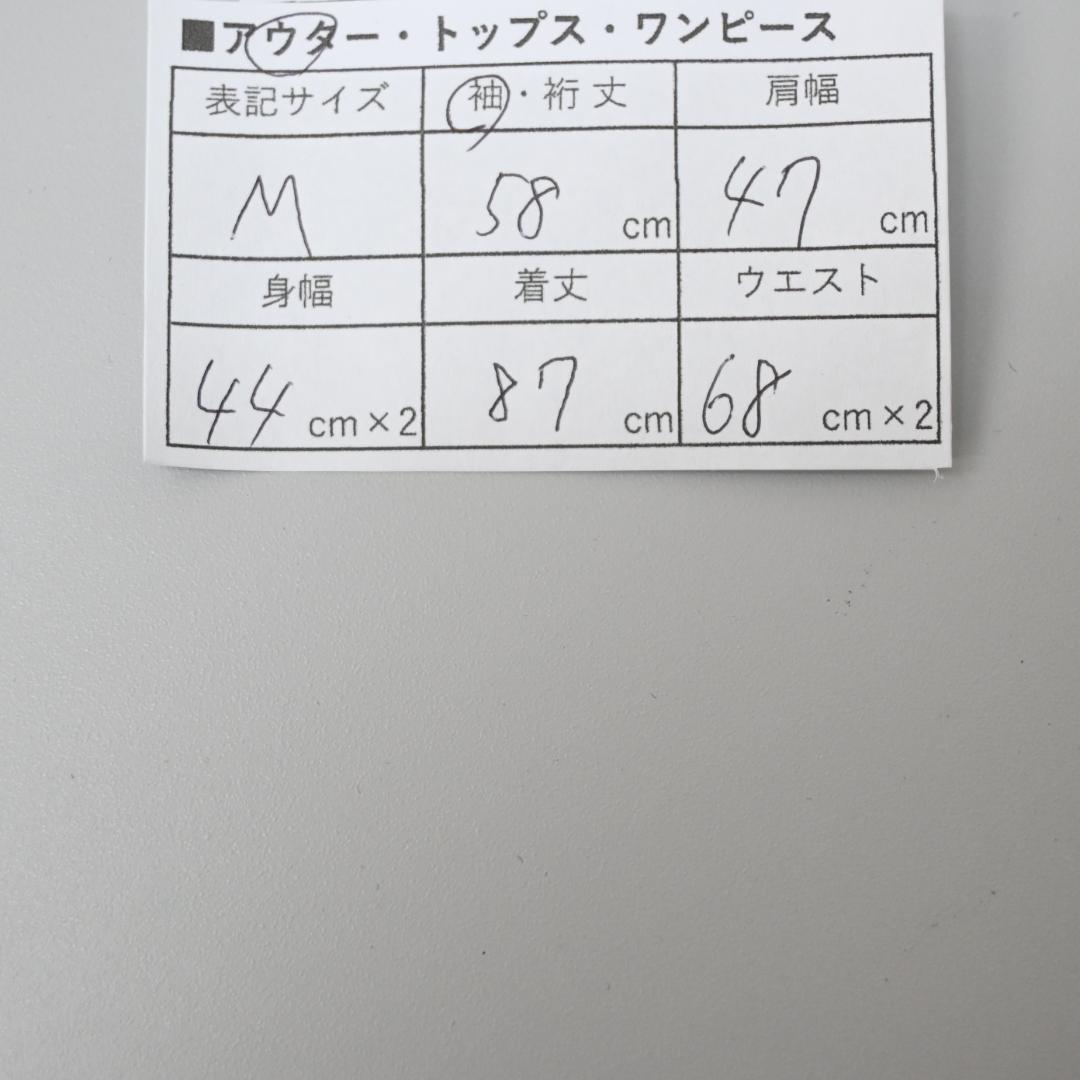 ■アウター・トップス・ワンピース
表記サイズ 袖・裄丈 肩幅
M 58 cm 47 cm
身幅 着丈 ウエスト
44 cm×2 87 cm 68 cm×2